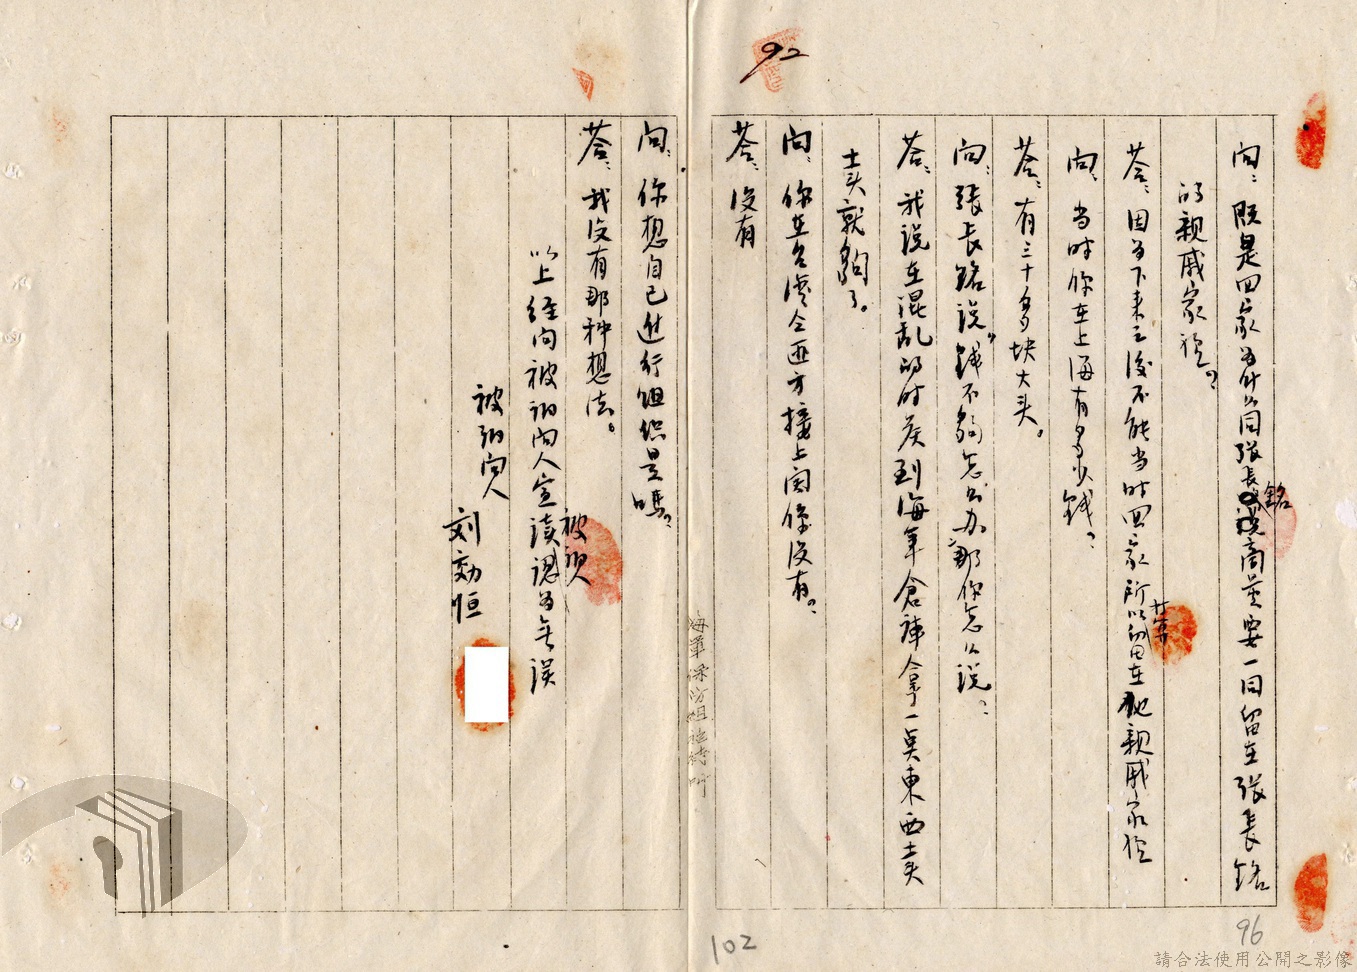 92
问：既是四家为什么同張長銘商量要一同留在張長銘
的親戚家於？
答：因为下来之後不能当时回家所以留在他親戚家於
问：当时你在上海有多少錢？
答：有三十多块大头。
问：張長銘说“錢不夠怎么办”那你怎么说？
答：我说在混乱的时候到海军倉庫拿一点東西卖
卖就夠了。
问：你在台湾仝匪方接上関係没有？
答：没有
问：你想自己进行组织是嗎？
答：我没有那种想法。
以上经向被讯问人宣读認为无误
被讯问人
刘効恒
海軍保防組招待所
102
96
請合法使用公開之影像